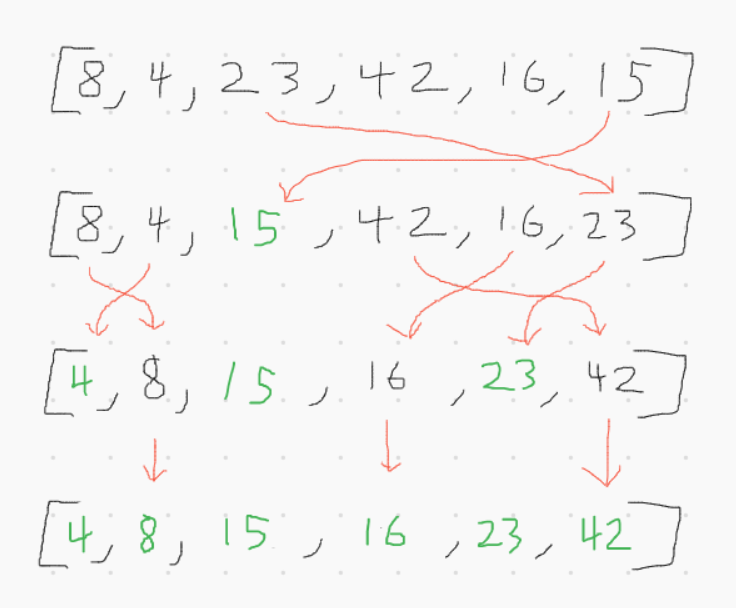 [8, 4, 23, 42, 16, 15]
[8, 4, 15, 42, 16, 23]
[4, 8, 15, 16, 23, 42]
[4, 8, 15, 16, 23, 42]